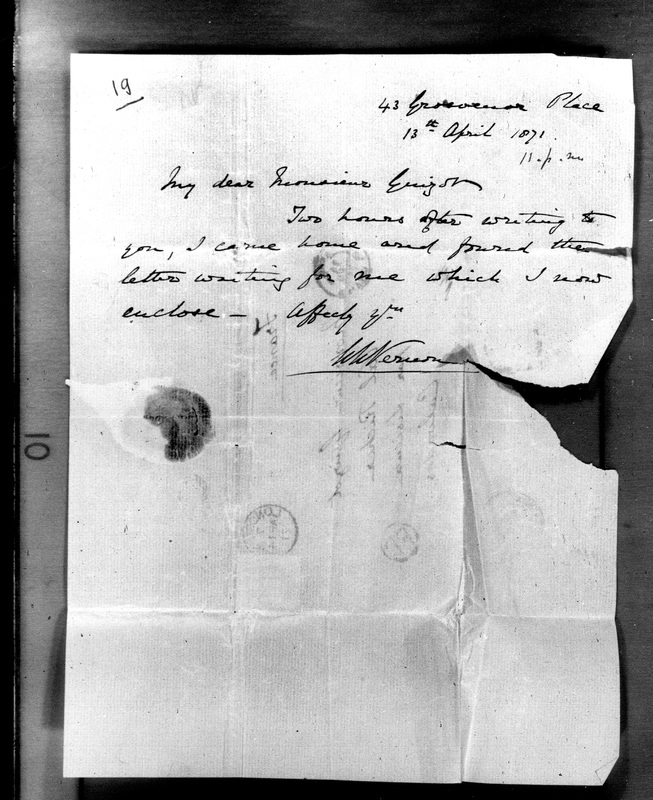 19
43 Grosvenor Place
13th April 1871.
11. p. m
My dear Monsieur Guizot
Two hours after writing to
you, I came home and found the
letter waiting for me which I now
enclose — Affecly yrs
Vernon
France
10